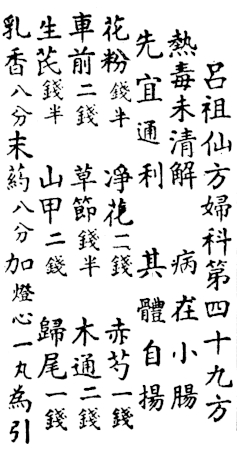 呂祖仙方婦科第四十九方
熱毒未清解　病在小腸
先宜通利　其體自揚
花粉錢半　淨花二錢　赤芍一錢
車前二錢　草節錢半　木通二錢
生芪錢半　山甲二錢　歸尾一錢
乳香八分　末葯八分　加燈心一丸為引